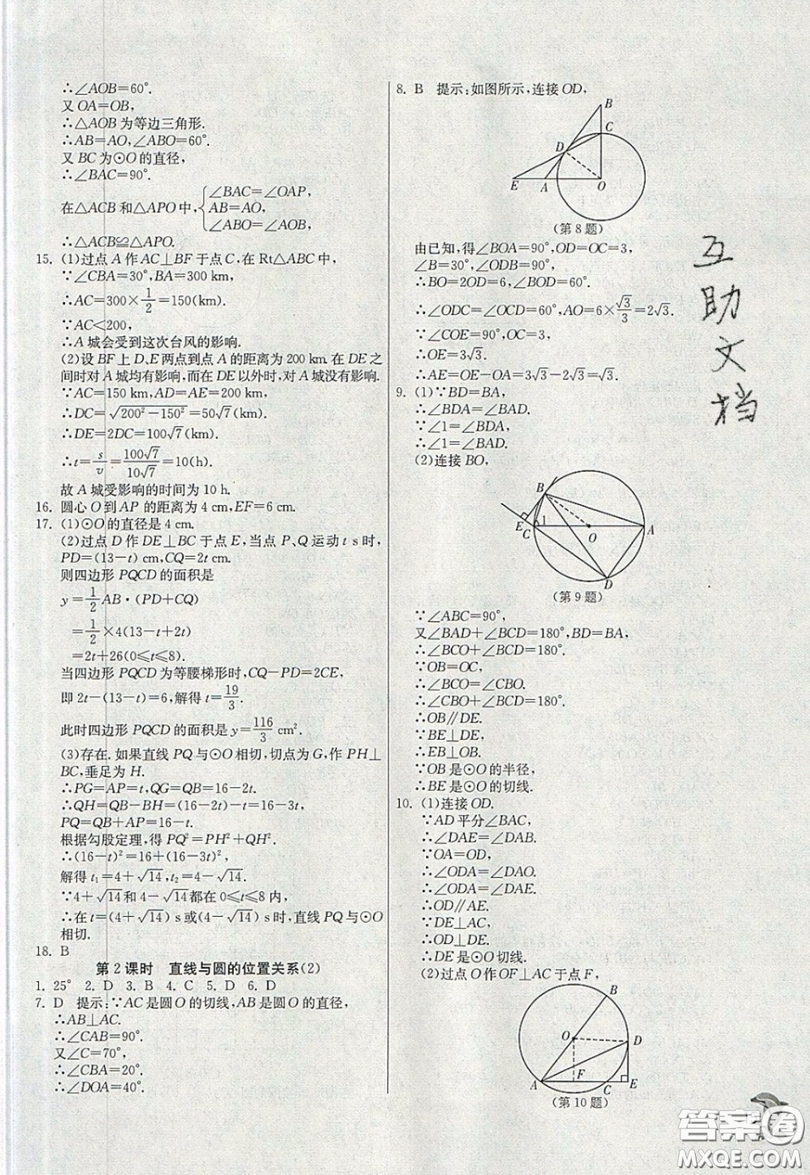 ∴∠AOB=60°.
又OA=OB,
∴△AOB为等边三角形.
∴AB=AO,∠ABO=60°.
又BC为⊙O的直径,
∴∠BAC=90°.
在△ACB和△APO中,{∠BAC=∠OAP,
AB=AO,
∠ABO=∠AOB,
∴△ACB≌△APO.
15. (1)过点A作AC⊥BF于点C,在Rt△ABC中,
∵∠CBA=30°,BA=300 km,
∴AC=300×1/2=150(km).
∵AC<200,
∴A城会受到这次台风的影响.
(2)设BF上D、E两点到点A的距离为200 km.在DE之
间时对A城均有影响,而在DE以外时,对A城没有影响.
∵AC=150 km,AD=AE=200 km,
∴DC=√(200²-150²)=50√7(km).
∴DE=2DC=100√7(km).
∴t=s/v=100√7/10√7=10(h).
故A城受影响的时间为10 h.
16. 圆心O到AP的距离为4 cm,EF=6 cm.
17. (1)⊙O的直径是4 cm.
(2)过点D作DE⊥BC于点E,当点P、Q运动t s时,
PD=(13-t) cm,CQ=2t cm.
则四边形PQCD的面积是
y=1/2AB·(PD+CQ)
=1/2×4(13-t+2t)
=2t+26(0≤t≤8).
当四边形PQCD为等腰梯形时,CQ-PD=2CE,
即2t-(13-t)=6,解得t=19/3.
此时四边形PQCD的面积是y=116/3 cm².
(3)存在.如果直线PQ与⊙O相切,切点为G,作PH⊥
BC,垂足为H.
∴PG=AP=t,QG=QB=16-2t.
∴QH=QB-BH=(16-2t)-t=16-3t,
PQ=QB+AP=16-t.
根据勾股定理,得PQ²=PH²+QH².
∴(16-t)²=16+(16-3t)²,
解得t₁=4+√14,t₂=4-√14.
∵4+√14和4-√14都在0≤t≤8内,
∴在t=(4+√14) s或(4-√14) s时,直线PQ与⊙O
相切.
18. B
第2课时 直线与圆的位置关系(2)
1. 25° 2. D 3. B 4. C 5. D 6. D
7. D 提示:∵AC是圆O的切线,AB是圆O的直径,
∴AB⊥AC.
∴∠CAB=90°.
又∠C=70°,
∴∠CBA=20°.
∴∠DOA=40°.
8. B 提示:如图所示,连接OD,
B
C
D
E A O
(第8题)
由已知,得∠BOA=90°,OD=OC=3,
∠B=30°,∠ODB=90°,
∴BO=2OD=6,∠BOD=60°.
∴∠ODC=∠OCD=60°,AO=6×√3/3=2√3.
∵∠COE=90°,OC=3,
∴OE=3√3.
∴AE=OE-OA=3√3-2√3=√3.
9. (1)∵BD=BA,
∴∠BDA=∠BAD.
∵∠1=∠BDA,
∴∠1=∠BAD.
(2)连接BO,
B
E 1
C O A
D
(第9题)
∵∠ABC=90°,
又∠BAD+∠BCD=180°,BD=BA,
∴∠BCO+∠BCD=180°.
∵OB=OC,
∴∠BCO=∠CBO.
∴∠CBO+∠BCD=180°.
∴OB∥DE.
∵BE⊥DE,
∴EB⊥OB.
∵OB是⊙O的半径,
∴BE是⊙O的切线.
10. (1)连接OD.
∵AD平分∠BAC,
∴∠DAE=∠DAB.
∵OA=OD,
∴∠ODA=∠DAO.
∴∠ODA=∠DAE.
∴OD∥AE.
∵DE⊥AC,
∴OD⊥DE.
∴DE是⊙O切线.
(2)过点O作OF⊥AC于点F,
B
O D
A F C E
(第10题)
互
助
文
档
答案圈
MXQE.COM